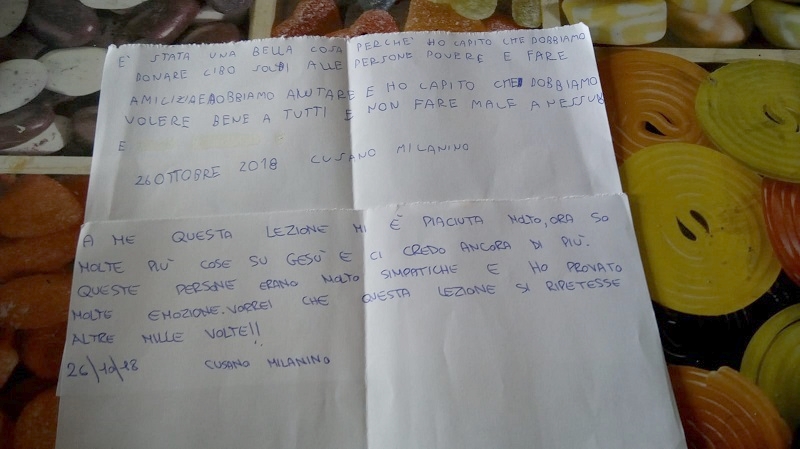 È STATA UNA BELLA COSA PERCHÈ HO CAPITO CHE DOBBIAMO
DONARE CIBO SOLDI ALLE PERSONE POVERE E FARE
AMICIZIA E DOBBIAMO AIUTARE E HO CAPITO CHE DOBBIAMO
VOLERE BENE A TUTTI E NON FARE MALE A NESSUN
E
26 OTTOBRE 2018 CUSANO MILANINO
A ME QUESTA LEZIONE MI È PIACIUTA MOLTO, ORA SO
MOLTE PIÙ COSE SU GESÙ E CI CREDO ANCORA DI PIÙ.
QUESTE PERSONE ERANO MOLTO SIMPATICHE E HO PROVATO
MOLTE EMOZIONE. VORREI CHE QUESTA LEZIONE SI RIPETESSE
ALTRE MILLE VOLTE!!
26/10/18 CUSANO MILANINO